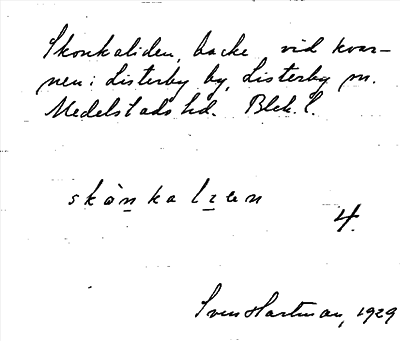 Skonkaliden, backe vid kvar-
nen i Listerby by, Listerby sn.
Medelstads hd. Blek. l.
skònkalɪen
4.
Sven Hartman, 1929